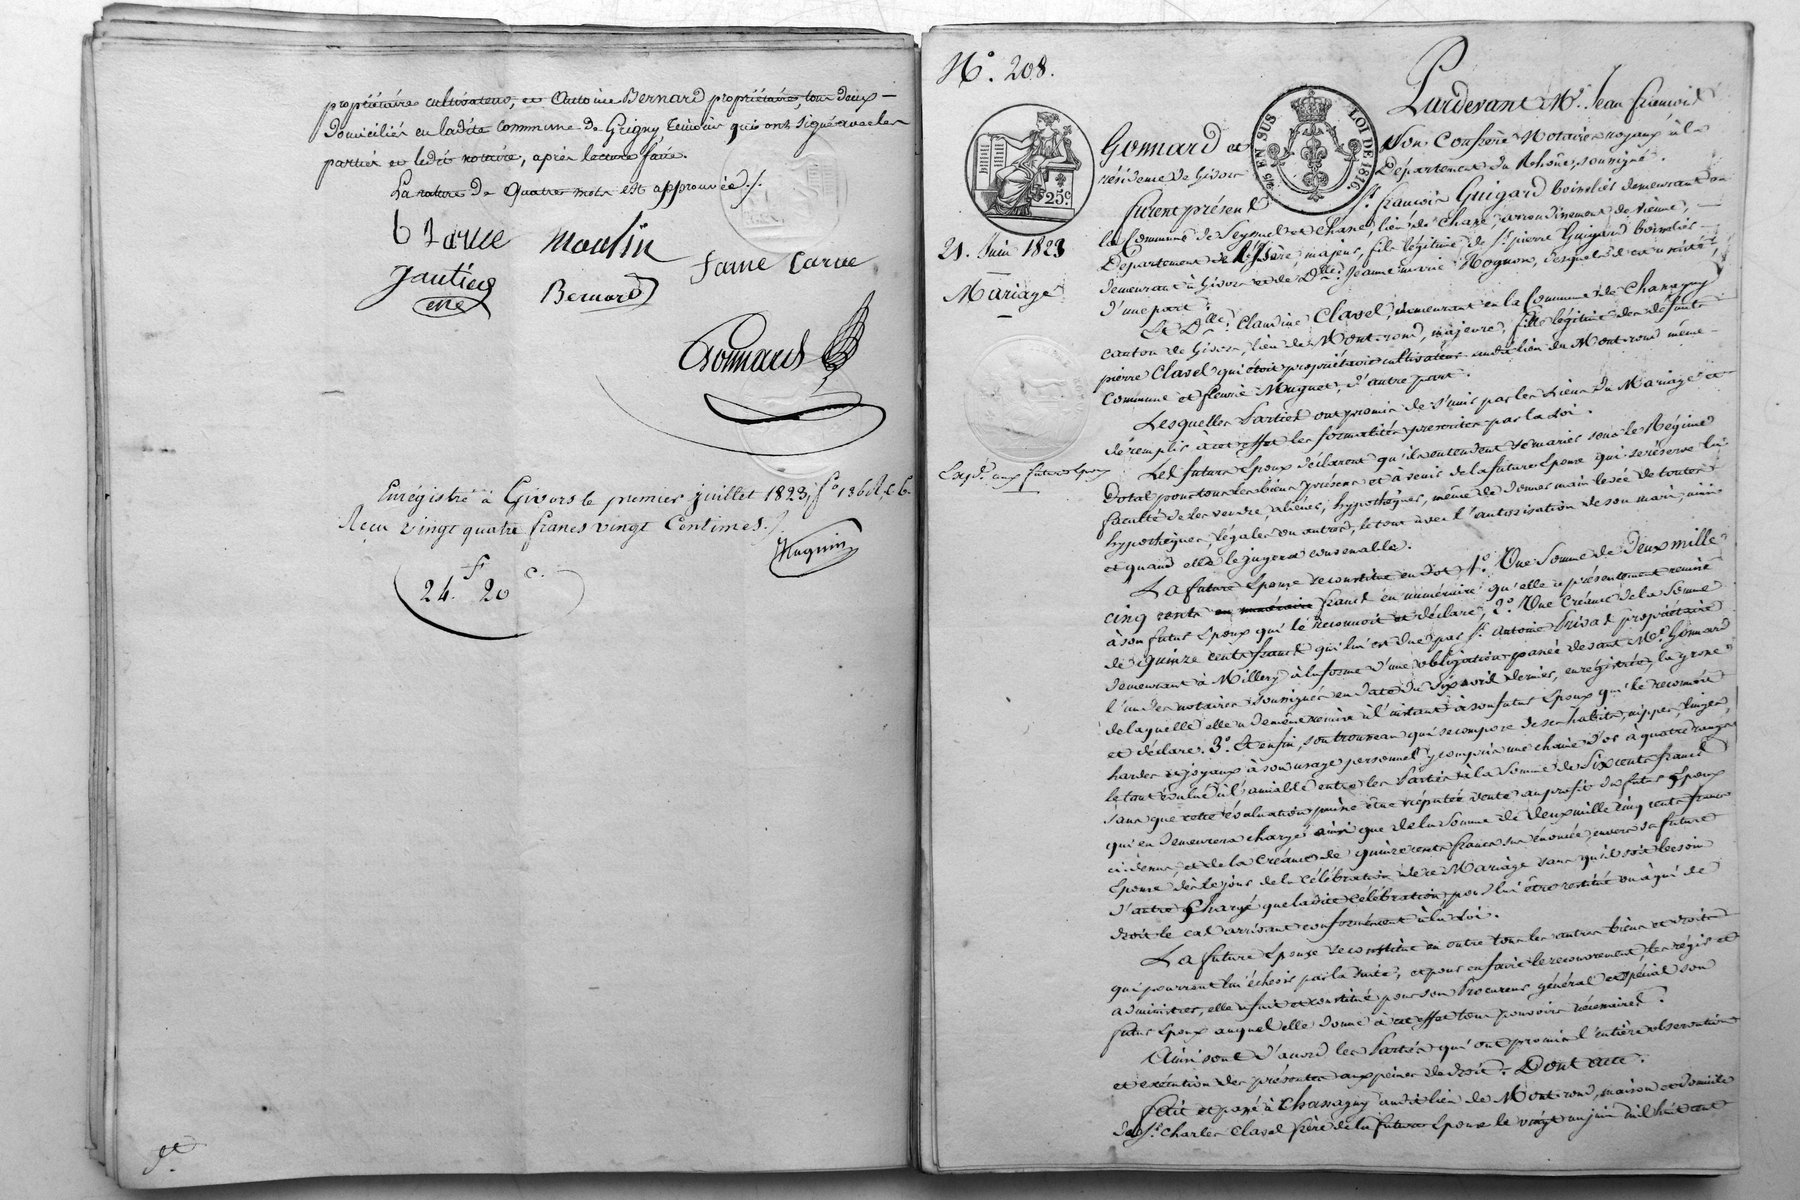 propriétaire cultivateur, et Antoine Bernard propriétaire, tous deux
domiciliés en ladite commune de Grigny témoins qui ont signé avec les
parties et ledit notaire, après lecture faite.
La rature de quatre mots est approuvée ./.
Moulin
Jame Carue
Bernard
Gonnard
Enrégistré à Givors le premier juillet 1823, fo 136
Reçu vingt quatre francs vingt Centimes ./.
Huguin
24 f 20 c.
N°. 208.
EN SUS
LOI DE 1816
25c
21. Juin 1823
Mariage
Expd. aux futurs Epoux
Pardevant Me. Jean François
Gonnard et Son Confrère Notaires royaux à la
résidence de Givors Département du Rhône, soussignés.
Furent présens Sr. François Guigard boisselier demeurant en
la Commune de Seyssuel et Chanel, lieu de Chane, arrondissement de Vienne,
Département de l'Isère, majeur, fils légitime de Sr. pierre Guigard boisselier
demeurant à Givors et de Dlle. Jeanne marie Rognon, lesquels
d'une part.
Et Dlle. Claudine Clavel, demeurant en la Commune de Chassagny
canton de Givors, lieu de Mont-rond, majeure, fille légitime des défunts
pierre Clavel qui étoit propriétaire cultivateur audit lieu du Mont-rond même
Commune et fleurie Muguet, d'autre part.
Lesquelles Parties ont promis de s'unir par les liens du Mariage et
de remplir à cet effet les formalités prescrites par la Loi.
Les futurs Epoux déclarent qu'ils entendent se marier sous le Régime
Dotal pour tous les biens présens et à venir de la future Epouse qui se réserve la
faculté de les vendre, aliéner, hypothéquer, même de donner main levée de toutes
hypothèques, légales ou autres, le tout avec l'autorisation de son mari, ainsi
et quand elle le jugera convenable.
La future Epouse se constitue en dot 1°. Une Somme de Deux mille
cinq cents en numéraire francs en numéraire qu'elle a présentement remise
à son futur Epoux qui le reconnoit et déclare; 2°. Une Créance de la Somme
de quinze cents francs qui lui est due par Sr. Antoine Privat propriétaire
demeurant à Millery à la forme d'une obligation passée devant Me. Gonnard
l'un des notaires soussignés en date du six avril dernier, enrégistrée, la grosse
de laquelle elle a de même remise à l'instant à son futur Epoux qui le reconnoit
et déclare. 3°. Et enfin, son trousseau qui se compose de ses habits, nippes, linges,
hardes et joyaux à son usage personnel y compris une chaîne d'or à quatre rangs
le tout évalué à l'amiable entre les Parties à la Somme de Six cents francs
sans que cette évaluation puisse être réputée vente au profit du futur Epoux
qui en demeurera chargé ainsi que de la Somme de Deux mille cinq cents francs
ci-dessus, et de la Créance de quinze cents francs sus énoncée, envers sa future
Epouse dès le jour de la célébration de ce Mariage sans qu'il soit besoin
d'autre Charge que ladite célébration, pour lui être restitué ou à qui de
droit le cas arrivant conformément à la Loi.
La future Epouse se constitue en outre tous les autres biens et droits
qui pourront lui échoir par la suite, et pour en faire le recouvrement, les régir et
administrer, elle a fait et constitué pour son Procureur général et spécial son
futur Epoux auquel elle donne à cet effet tous pouvoirs nécessaires.
Ainsi sont d'accord les Parties qui ont promis l'entière observation
et exécution des présentes aux peines de droit. Dont acte.
Fait et passé à Chassagny audit lieu de Mont-rond, maison et domicile
de Sr. Charles Clavel frère de la future Epouse le vingt un juin mil huit cent